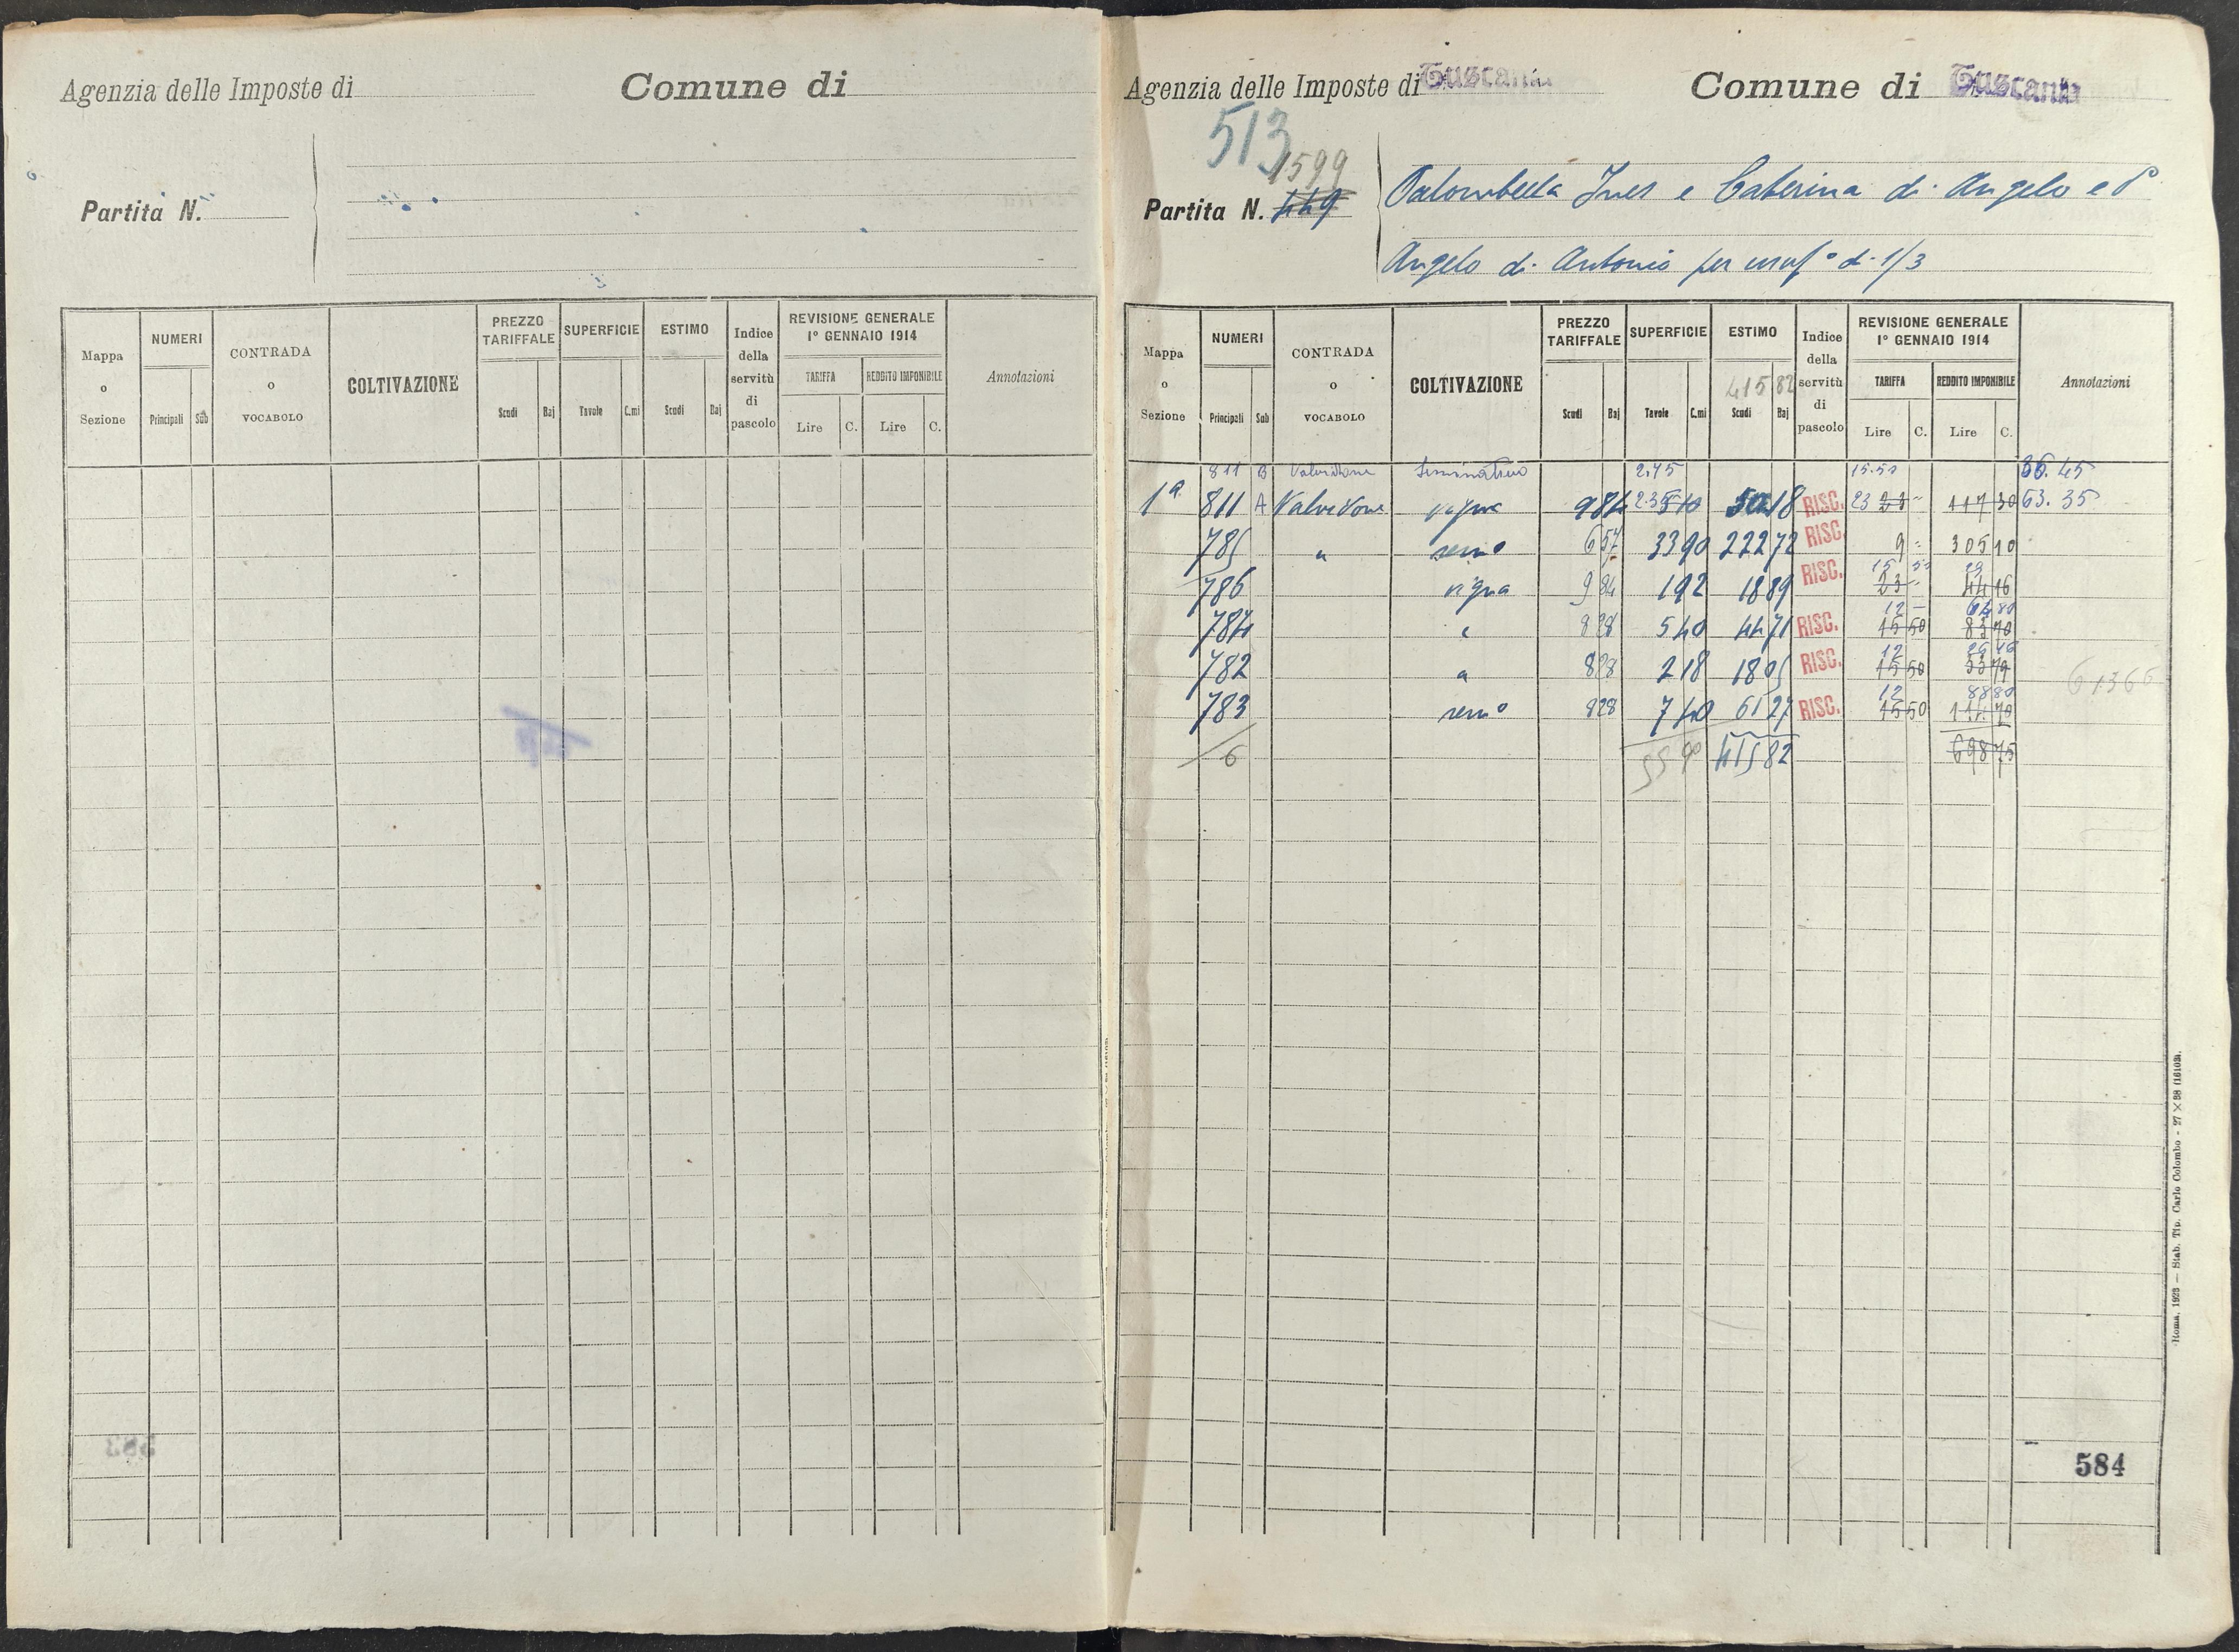 Agenzia delle Imposte di
Comune di
Partita N.
Mappa o Sezione
NUMERI
Principali
Sub
CONTRADA o VOCABOLO
COLTIVAZIONE
PREZZO TARIFFALE
Scudi
Baj
SUPERFICIE
Tavole
C.mi
ESTIMO
Scudi
Baj
Indice della servitù di pascolo
REVISIONE GENERALE
1º GENNAIO 1914
TARIFFA
REDDITO IMPONIBILE
Lire
C.
Lire
C.
Annotazioni
Agenzia delle Imposte di Tuscania
Comune di Tuscania
513
1599
Partita N. 449
Palombella Ines e Caterina di Angelo e P
Angelo di Antonio per usuf.o di 1/3
Mappa o Sezione
NUMERI
Principali
Sub
CONTRADA o VOCABOLO
COLTIVAZIONE
PREZZO TARIFFALE
Scudi
Baj
SUPERFICIE
Tavole
C.mi
ESTIMO
415 82
Scudi
Baj
Indice della servitù di pascolo
REVISIONE GENERALE
1º GENNAIO 1914
TARIFFA
REDDITO IMPONIBILE
Lire
C.
Lire
C.
Annotazioni
811 B Valvidone Seminativo 2.45 15.50 36.45
1ª 811 A Valvidone vigna 984 510 5018 RISC. 23 23 117 30 63.35
785 " semo 657 3390 22272 RISC. 9 305 10
15 50 29
786 vigna 984 192 1889 RISC. 23 44 16
12 64 80
784 " 828 540 4471 RISC. 15 50 83 70
12 26 16
782 " 828 218 1805 RISC. 15 50 33 79
12 88 80
783 semo 828 740 6127 RISC. 15 50 114 70
6 55 90 415 82 698 75
613 66
584
Roma, 1923 — Stab. Tip. Carlo Colombo - 27 × 38 (16103).